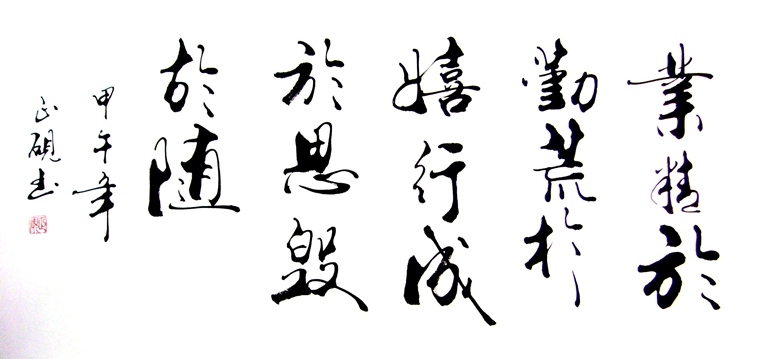 業精於
勤荒於
嬉行成
於思毀
於隨
甲午年
硯書